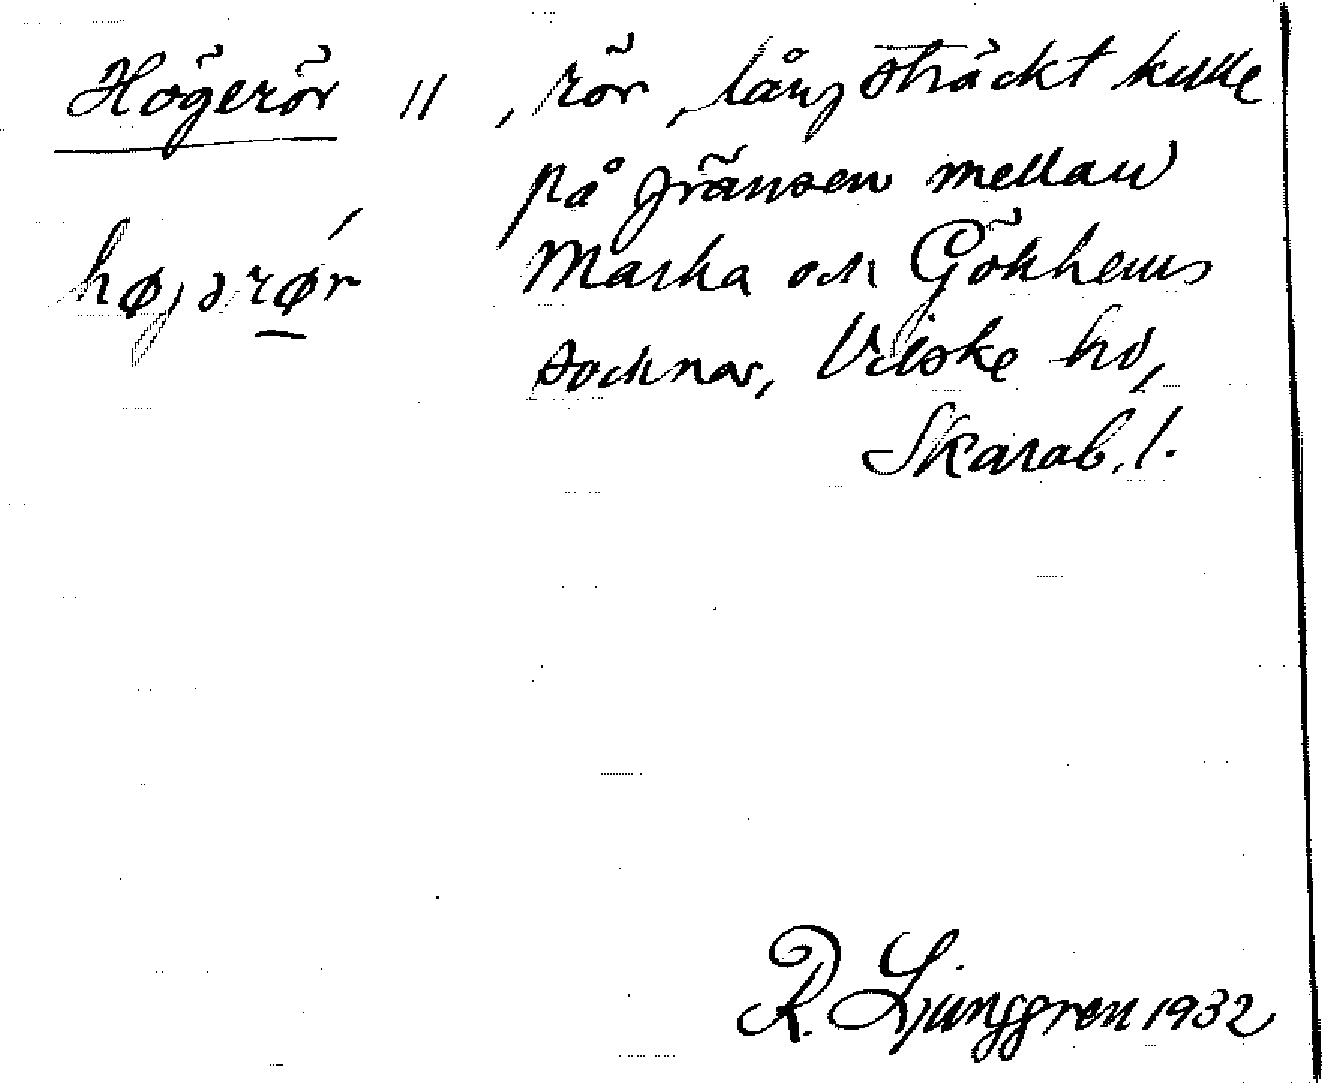 Högerör 11, rör, långsträckt kulle
på gränsen mellan
højərør Marka och Gökhems
socknar, Vilske hd,
Skarab. l.
R. Ljunggren 1932